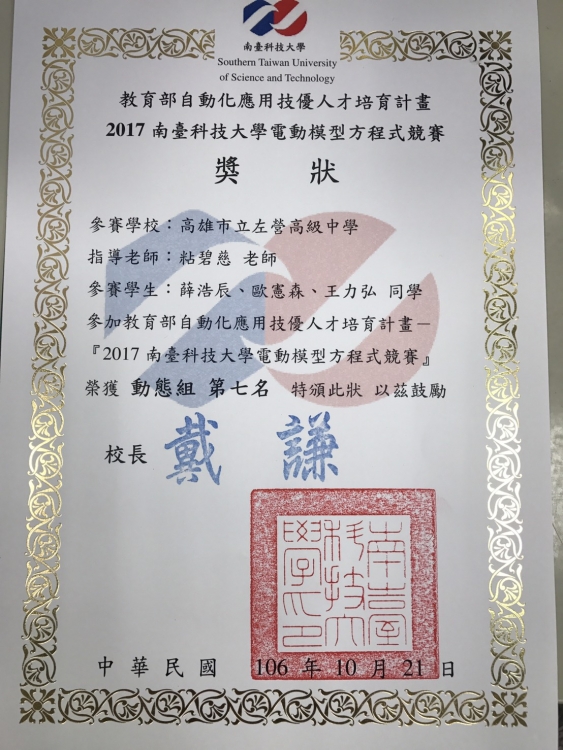 南臺科技大學
Southern Taiwan University
of Science and Technology
教育部自動化應用技優人才培育計畫
2017 南臺科技大學電動模型方程式競賽
獎 狀
參賽學校：高雄市立左營高級中學
指導老師：粘碧慈 老師
參賽學生：薛浩辰、歐憲森、王力弘 同學
參加教育部自動化應用技優人才培育計畫－
『2017 南臺科技大學電動模型方程式競賽』
榮獲 動態組 第七名 特頒此狀 以茲鼓勵
校長 戴謙
南臺
科技大
學印
中華民國 106 年 10 月 21 日